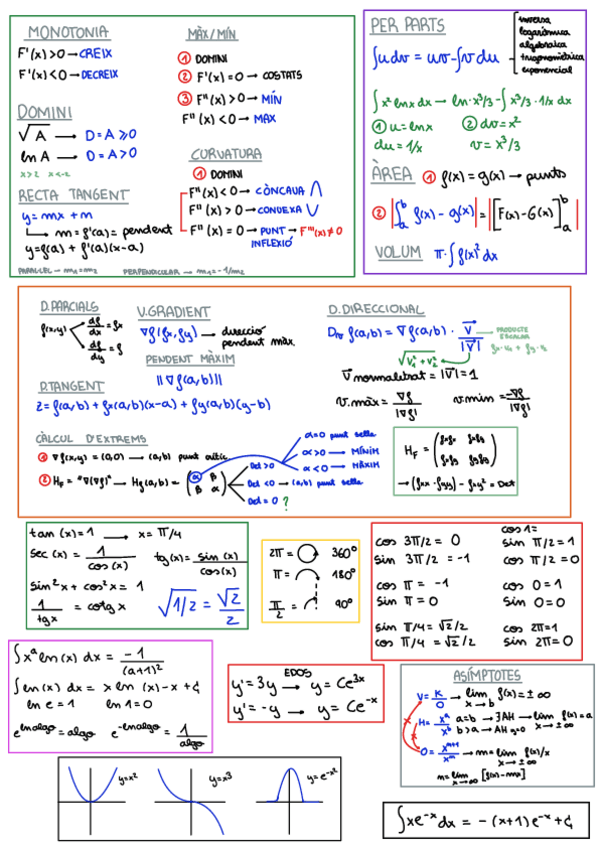 MONOTONIA
F'(x) > 0 → CREIX
F'(x) < 0 → DECREIX
DOMINI
√A → D = A ⩾ 0
ln A → D = A > 0
x > 2 x < -2
RECTA TANGENT
y = mx + m
m = f'(a) = pendent
y = f(a) + f'(a)(x-a)
PARAL·LEL → m₁ = m₂ PERPENDICULAR → m₁ = -1/m₂
MÀX/MÍN
1 DOMINI
2 F'(x) = 0 → COSTATS
3 F''(x) > 0 → MÍN
F''(x) < 0 → MAX
CURVATURA
1 DOMINI
F''(x) < 0 → CÒNCAVA ∩
F''(x) > 0 → CONVEXA ∪
F''(x) = 0 → PUNT → F'''(x) ≠ 0
INFLEXIÓ
PER PARTS
∫u dv = uv - ∫v du
inversa
logarítmica
algebraica
trigonomètrica
exponencial
∫x² ln x dx → ln · x³/3 - ∫x³/3 · 1/x dx
1 u = ln x 2 dv = x²
du = 1/x v = x³/3
ÀREA 1 f(x) = g(x) → punts
2 |∫ₐᵇ f(x) - g(x)| = |[F(x) - G(x)]ₐᵇ|
VOLUM π · ∫f(x)² dx
D.PARCIALS
f(x,y)
df/dx = fx
df/dy = f
V.GRADIENT
∇f(fx, fy) → direcció
pendent màx.
PENDENT MÀXIM
||∇f(a,b)||
D.TANGENT
z = f(a,b) + fx(a,b)(x-a) + fy(a,b)(y-b)
D.DIRECCIONAL
Dv f(a,b) = ∇f(a,b) · v/|v| → PRODUCTE
ESCALAR
√v₁² + v₂² fx · v₁ + fy · v₂
v normalitzat = |v| = 1
v.màx = ∇f/|∇f| v.mín = -∇f/|∇f|
CÀLCUL D'EXTREMS
1 ∇f(x,y) = (0,0) → (a,b) punt crític
2 HF = "∇(∇f)" → Hf(a,b) = (α β
β α)
Det > 0
Det < 0 → (a,b) punt sella
Det = 0 ?
α = 0 punt sella
α > 0 → MÍNIM
α < 0 → MÀXIM
HF = (fxfx fxfy
fyfx fyfy)
→ (fxx · fyy) - fxy² = Det
tan(x) = 1 → x = π/4
sec(x) = 1/cos(x) tg(x) = sin(x)/cos(x)
sin²x + cos²x = 1
1/tgx = cotg x √1/2 = √2/2
2π = 360°
π = 180°
π/2 = 90°
cos 1 =
cos 3π/2 = 0 sin π/2 = 1
sin 3π/2 = -1 cos π/2 = 0
cos π = -1 cos 0 = 1
sin π = 0 sin 0 = 0
sin π/4 = √2/2 cos 2π = 1
cos π/4 = √2/2 sin 2π = 0
∫xᵃ ln(x) dx = -1/(a+1)²
∫ln(x) dx = x ln(x) - x + C
ln e = 1 ln 1 = 0
e^lnalgo = algo e^-lnalgo = 1/algo
EDOS
y' = 3y → y = Ce^3x
y' = -y → y = Ce^-x
ASÍMPTOTES
V = K/0 → lim x→b f(x) = ±∞
H = xᵃ/xᵇ a = b → ∃AH → lim x→±∞ f(x) = a
b > a → AH y=0
O = x^m+1/x^m → m = lim x→±∞ f(x)/x
n = lim x→∞ [f(x) - mx]
y = x²
y = x³
y = e^-x²
∫xe^-x dx = -(x+1)e^-x + C